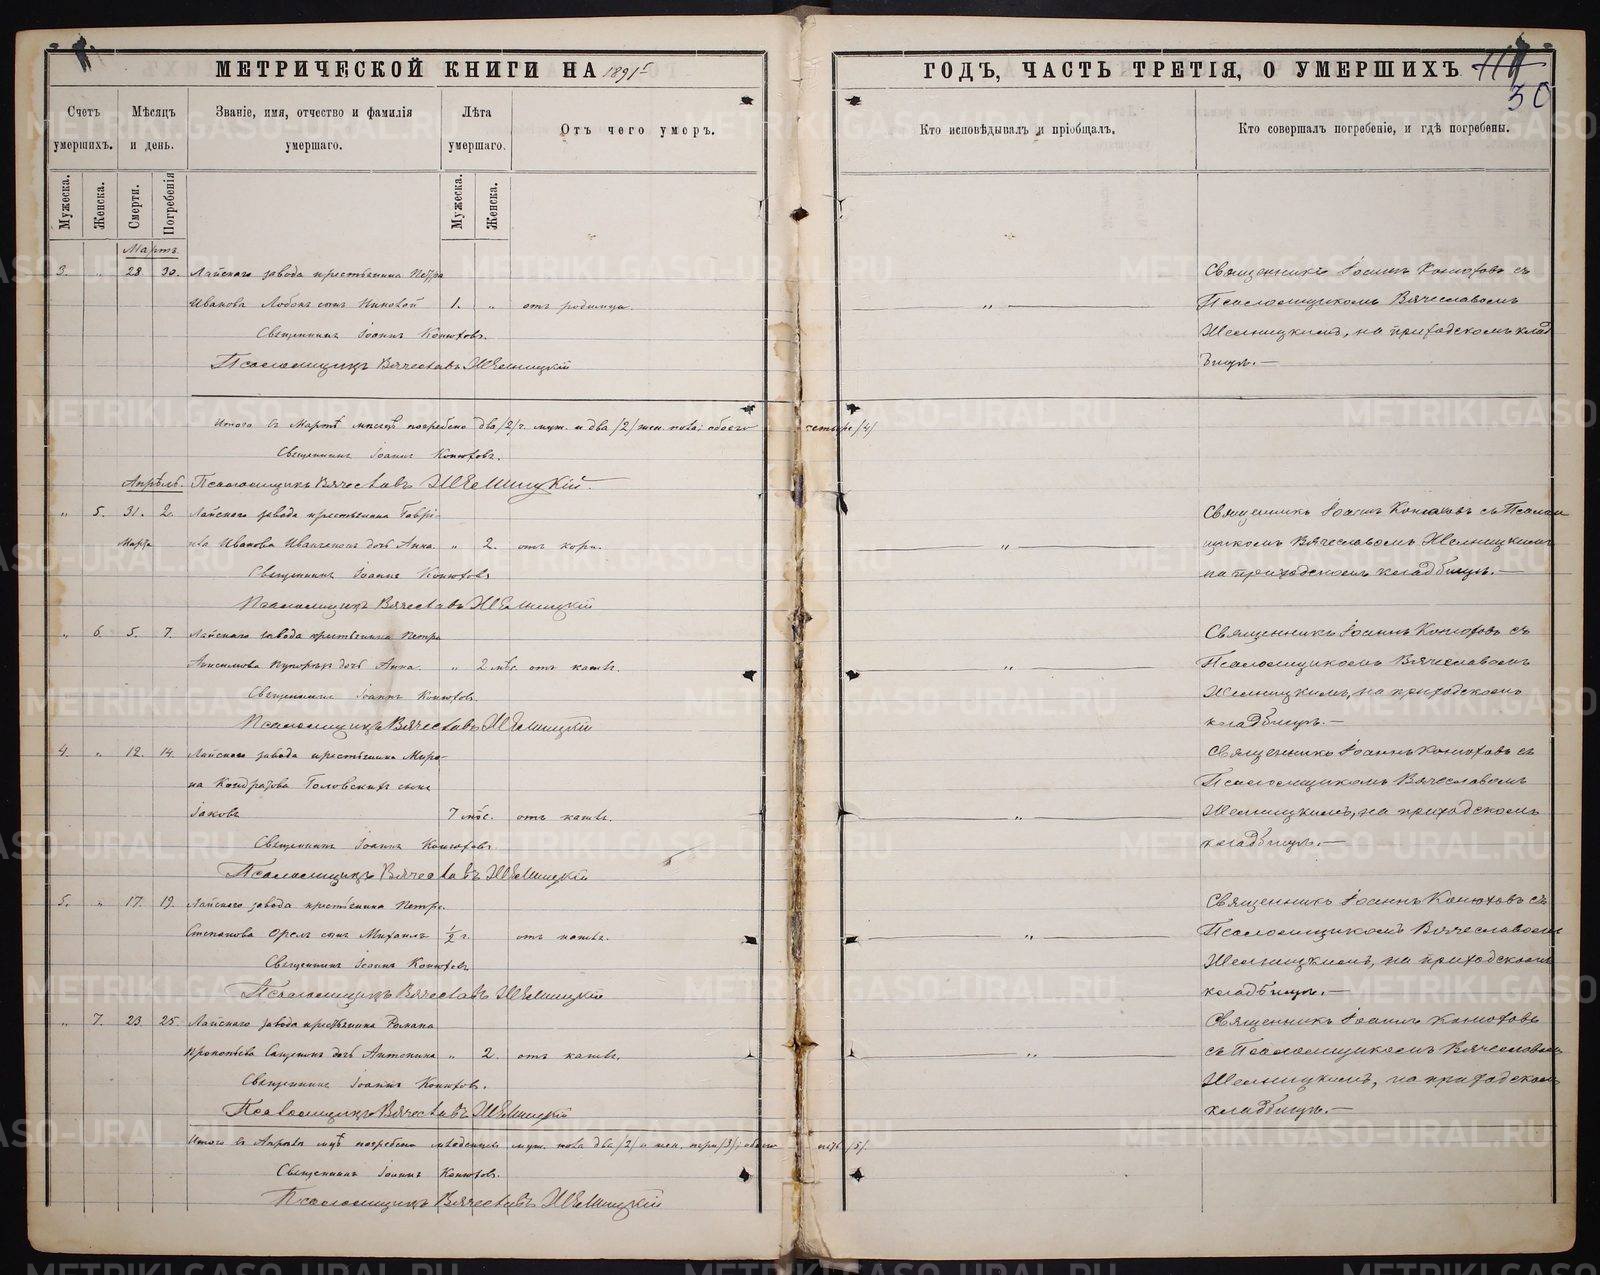 МЕТРИЧЕСКОЙ КНИГИ НА 1891 г.
ГОДЪ, ЧАСТЬ ТРЕТІЯ, О УМЕРШИХЪ
30
Счетъ умершихъ.
Мѣсяцъ и день.
Званіе, имя, отчество и фамилія умершаго.
Лѣта умершаго.
Отъ чего умеръ.
Кто исповѣдывалъ и пріобщалъ.
Кто совершалъ погребеніе, и гдѣ погребены.
Мужеска.
Женска.
Смерти.
Погребенія
Мужеска.
Женска.
Мартъ.
3. " 28 30. Лайскаго завода крестьянина Петра
Иванова Лобокъ сынъ Николай 1. " отъ родимца.
Священникъ Іоаннъ Конюховъ.
Псаломщикъ Вячеславъ Желницкій
"
Священникъ Іоаннъ Конюховъ съ
Псаломщикомъ Вячеславомъ
Желницкимъ, на приходскомъ клад
бищѣ.—
Итого въ Мартѣ мѣсяцѣ погребено два /2/ муж. и два /2/ жен. пола; обоего четыре /4/
Священникъ Іоаннъ Конюховъ.
Апрѣль. Псаломщикъ Вячеславъ Желницкій.
" 5. 31. 2. Лайскаго завода крестьянина Гаврі-
Марта ила Иванова дочь Анна. " 2. отъ кори.
Священникъ Іоаннъ Конюховъ
Псаломщикъ Вячеславъ Желницкій
"
Священникъ Іоаннъ Конюховъ съ Псалом
щикомъ Вячеславомъ Желницкимъ
на приходскомъ кладбищѣ.—
" 6. 5. 7. Лайскаго завода крестьянина Петра
Анисимова дочь Анна. " 2 мѣс. отъ кашл.
Священникъ Іоаннъ Конюховъ
Псаломщикъ Вячеславъ Желницкій
"
Священникъ Іоаннъ Конюховъ съ
Псаломщикомъ Вячеславомъ
Желницкимъ, на приходскомъ
кладбищѣ.—
4. " 12. 14. Лайскаго завода крестьянина Миро-
на Кондратова Головскихъ сынъ
Іаковъ 7 мѣс. отъ кашл.
Священникъ Іоаннъ Конюховъ.
Псаломщикъ Вячеславъ Желницкій
"
Священникъ Іоаннъ Конюховъ съ
Псаломщикомъ Вячеславомъ
Желницкимъ, на приходскомъ
кладбищѣ.—
5. " 17. 19. Лайскаго завода крестьянина Петра
Степанова Орелъ сынъ Михаилъ ½ г. отъ кашл.
Священникъ Іоаннъ Конюховъ
Псаломщикъ Вячеславъ Желницкій
"
Священникъ Іоаннъ Конюховъ съ
Псаломщикомъ Вячеславомъ
Желницкимъ, на приходскомъ
кладбищѣ.—
" 7. 23. 25. Лайскаго завода крестьянина Романа
Прокопьева дочь Антонина " 2. отъ кашл.
Священникъ Іоаннъ Конюховъ.
Псаломщикъ Вячеславъ Желницкій
"
Священникъ Іоаннъ Конюховъ
съ Псаломщикомъ Вячеславомъ
Желницкимъ, на приходскомъ
кладбищѣ.—
Итого въ Апрѣлѣ мцѣ погребено младенцевъ муж. пола два /2/ и жен. три /3/; обоего пять /5/.
Священникъ Іоаннъ Конюховъ.
Псаломщикъ Вячеславъ Желницкій
METRIKI.GASO-URAL.RU